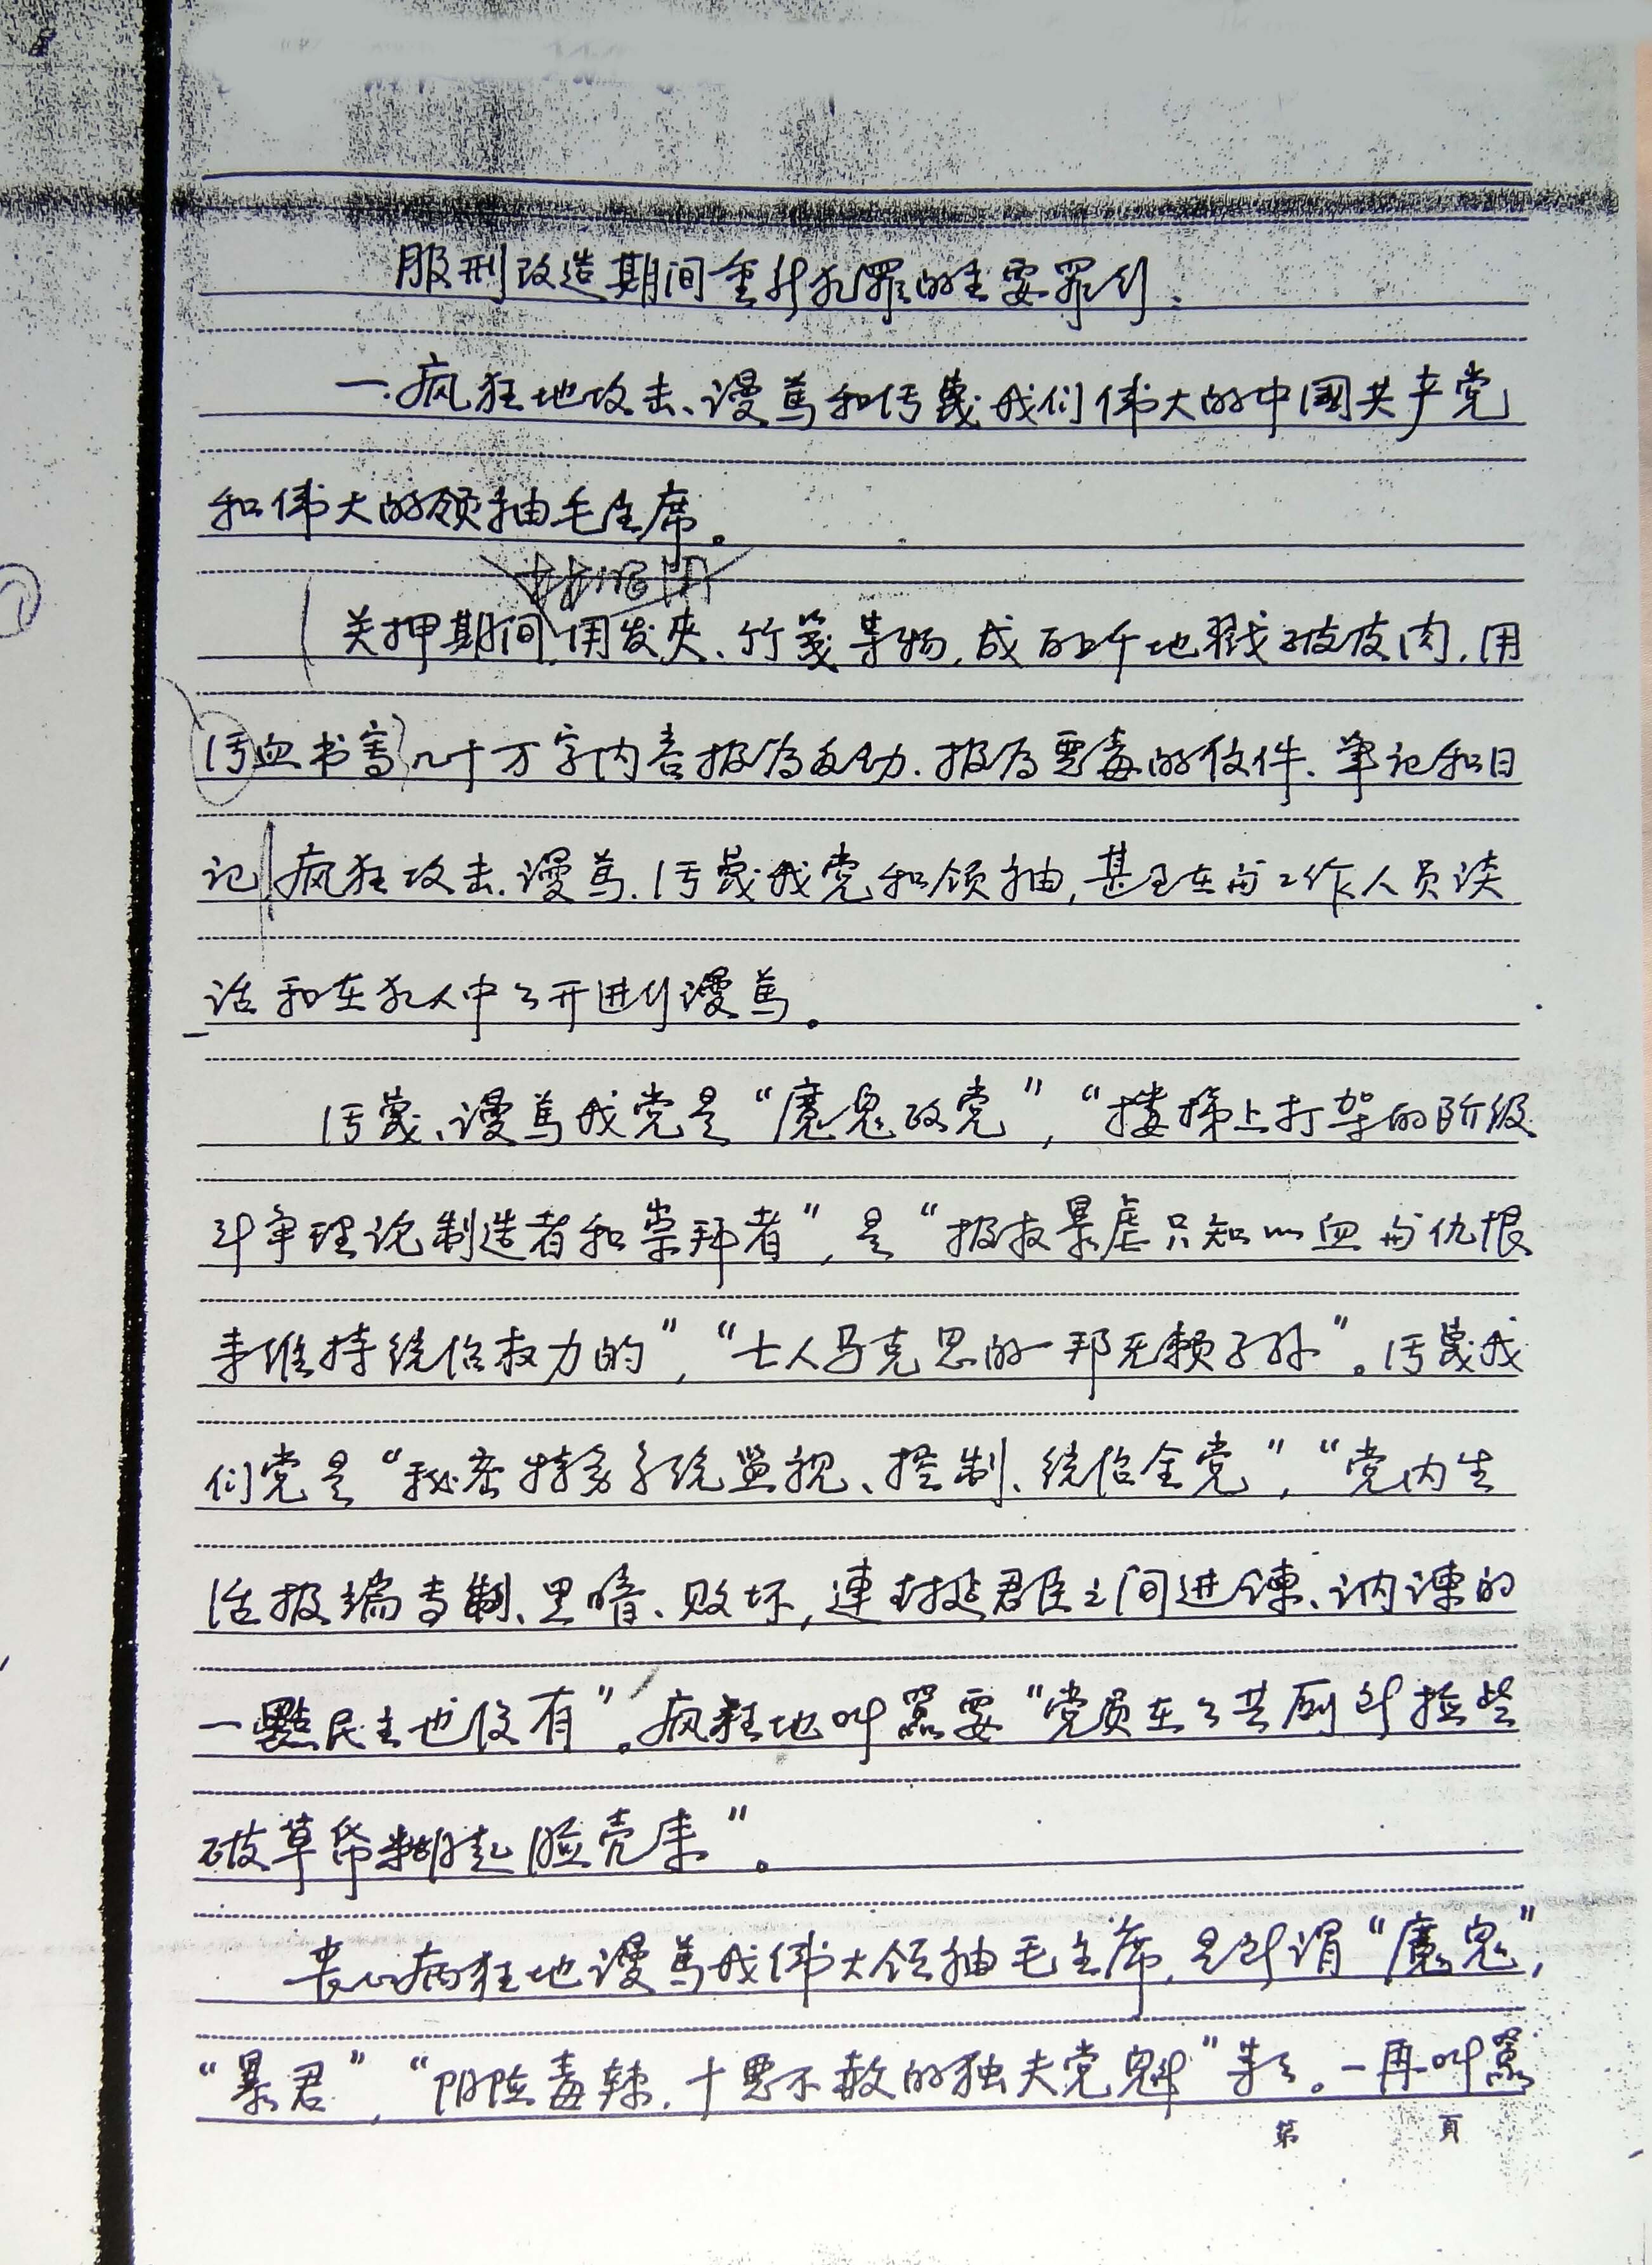 服刑改造期间重新犯罪的主要罪行：
一.疯狂地攻击、谩骂和污蔑我们伟大的中国共产党
和伟大的领袖毛主席。
关押期间,用发夹、竹笺等物,成百上千地戳破皮肉,用
污血书写几十万字内容极为反动.极为恶毒的信件、笔记和日
记,疯狂攻击.谩骂.污蔑我党和领袖,甚至在与工作人员谈
话和在犯人中公开进行谩骂。
污蔑、谩骂我党是“魔鬼政党”,“楼梯上打架的阶级
斗争理论制造者和崇拜者”,是“极权暴虐只知以血与仇恨
来维持统治权力的”,“士人马克思的一邦无赖子孙”。污蔑我
们党是“秘密特务系统监视、控制、统治全党”,“党内生
活极端专制、黑暗、败坏,連封建君臣之间进谏、讷谏的
一點民主也没有”。疯狂地叫嚣要“党员在公共厕所捡些
破草帋糊起脸壳来”
。
丧心病狂地谩骂我伟大领袖毛主席,是所谓“魔鬼”,
“暴君”,“阴险毒辣.十恶不赦的独夫党魁”等々。一再叫嚣
第 頁